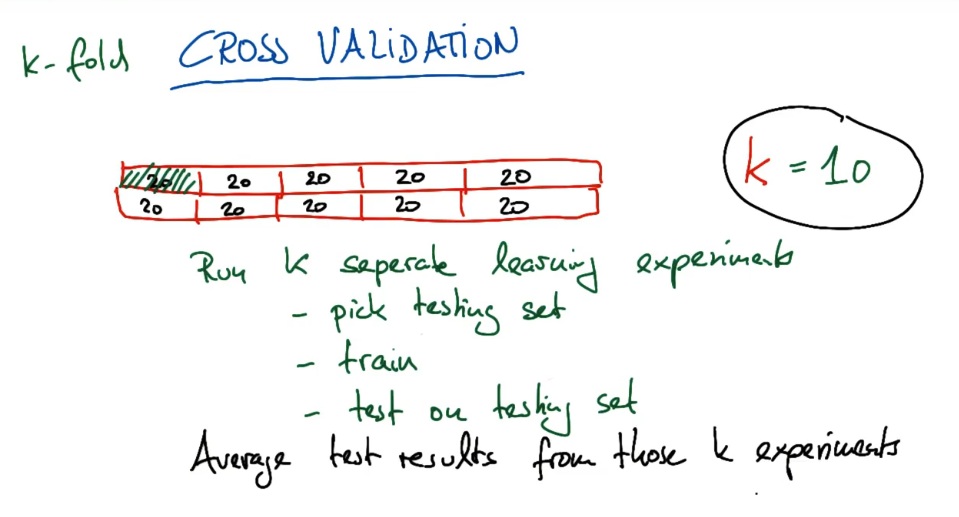 k-fold CROSS VALiDATiON
20 20 20 20 20
20 20 20 20 20
k = 10
Run k seperate learning experiments
- pick testing set
- train
- test on testing set
Average test results from those k experiments